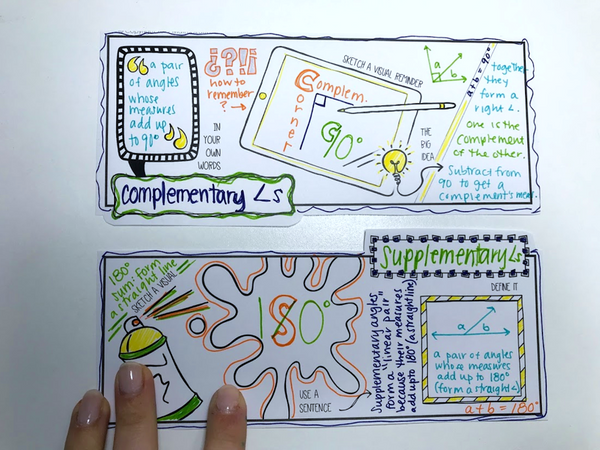 a pair
of angles
whose
measures
add up
to 90°
¿?!¡
how to
remember
?
IN
YOUR
OWN
WORDS
complementary ∠s
SKETCH A VISUAL REMINDER
Complem.
Corner
90°
THE
BIG
IDEA
a
b
a+b=90°
together
they
form a
right ∠.
one is the
complement
of the other.
Subtract from
90 to get a
complement's meas.
180°
sum: Form
a straight line
SKETCH A VISUAL
180°
USE A
SENTENCE
Supplementary angles
form a "linear pair"
because their measures
add up to 180° (a straight line)
Supplementary ∠s
DEFINE IT
a
b
a pair of angles
whose measures
add up to 180°
(form a straight ∠)
a+b=180°